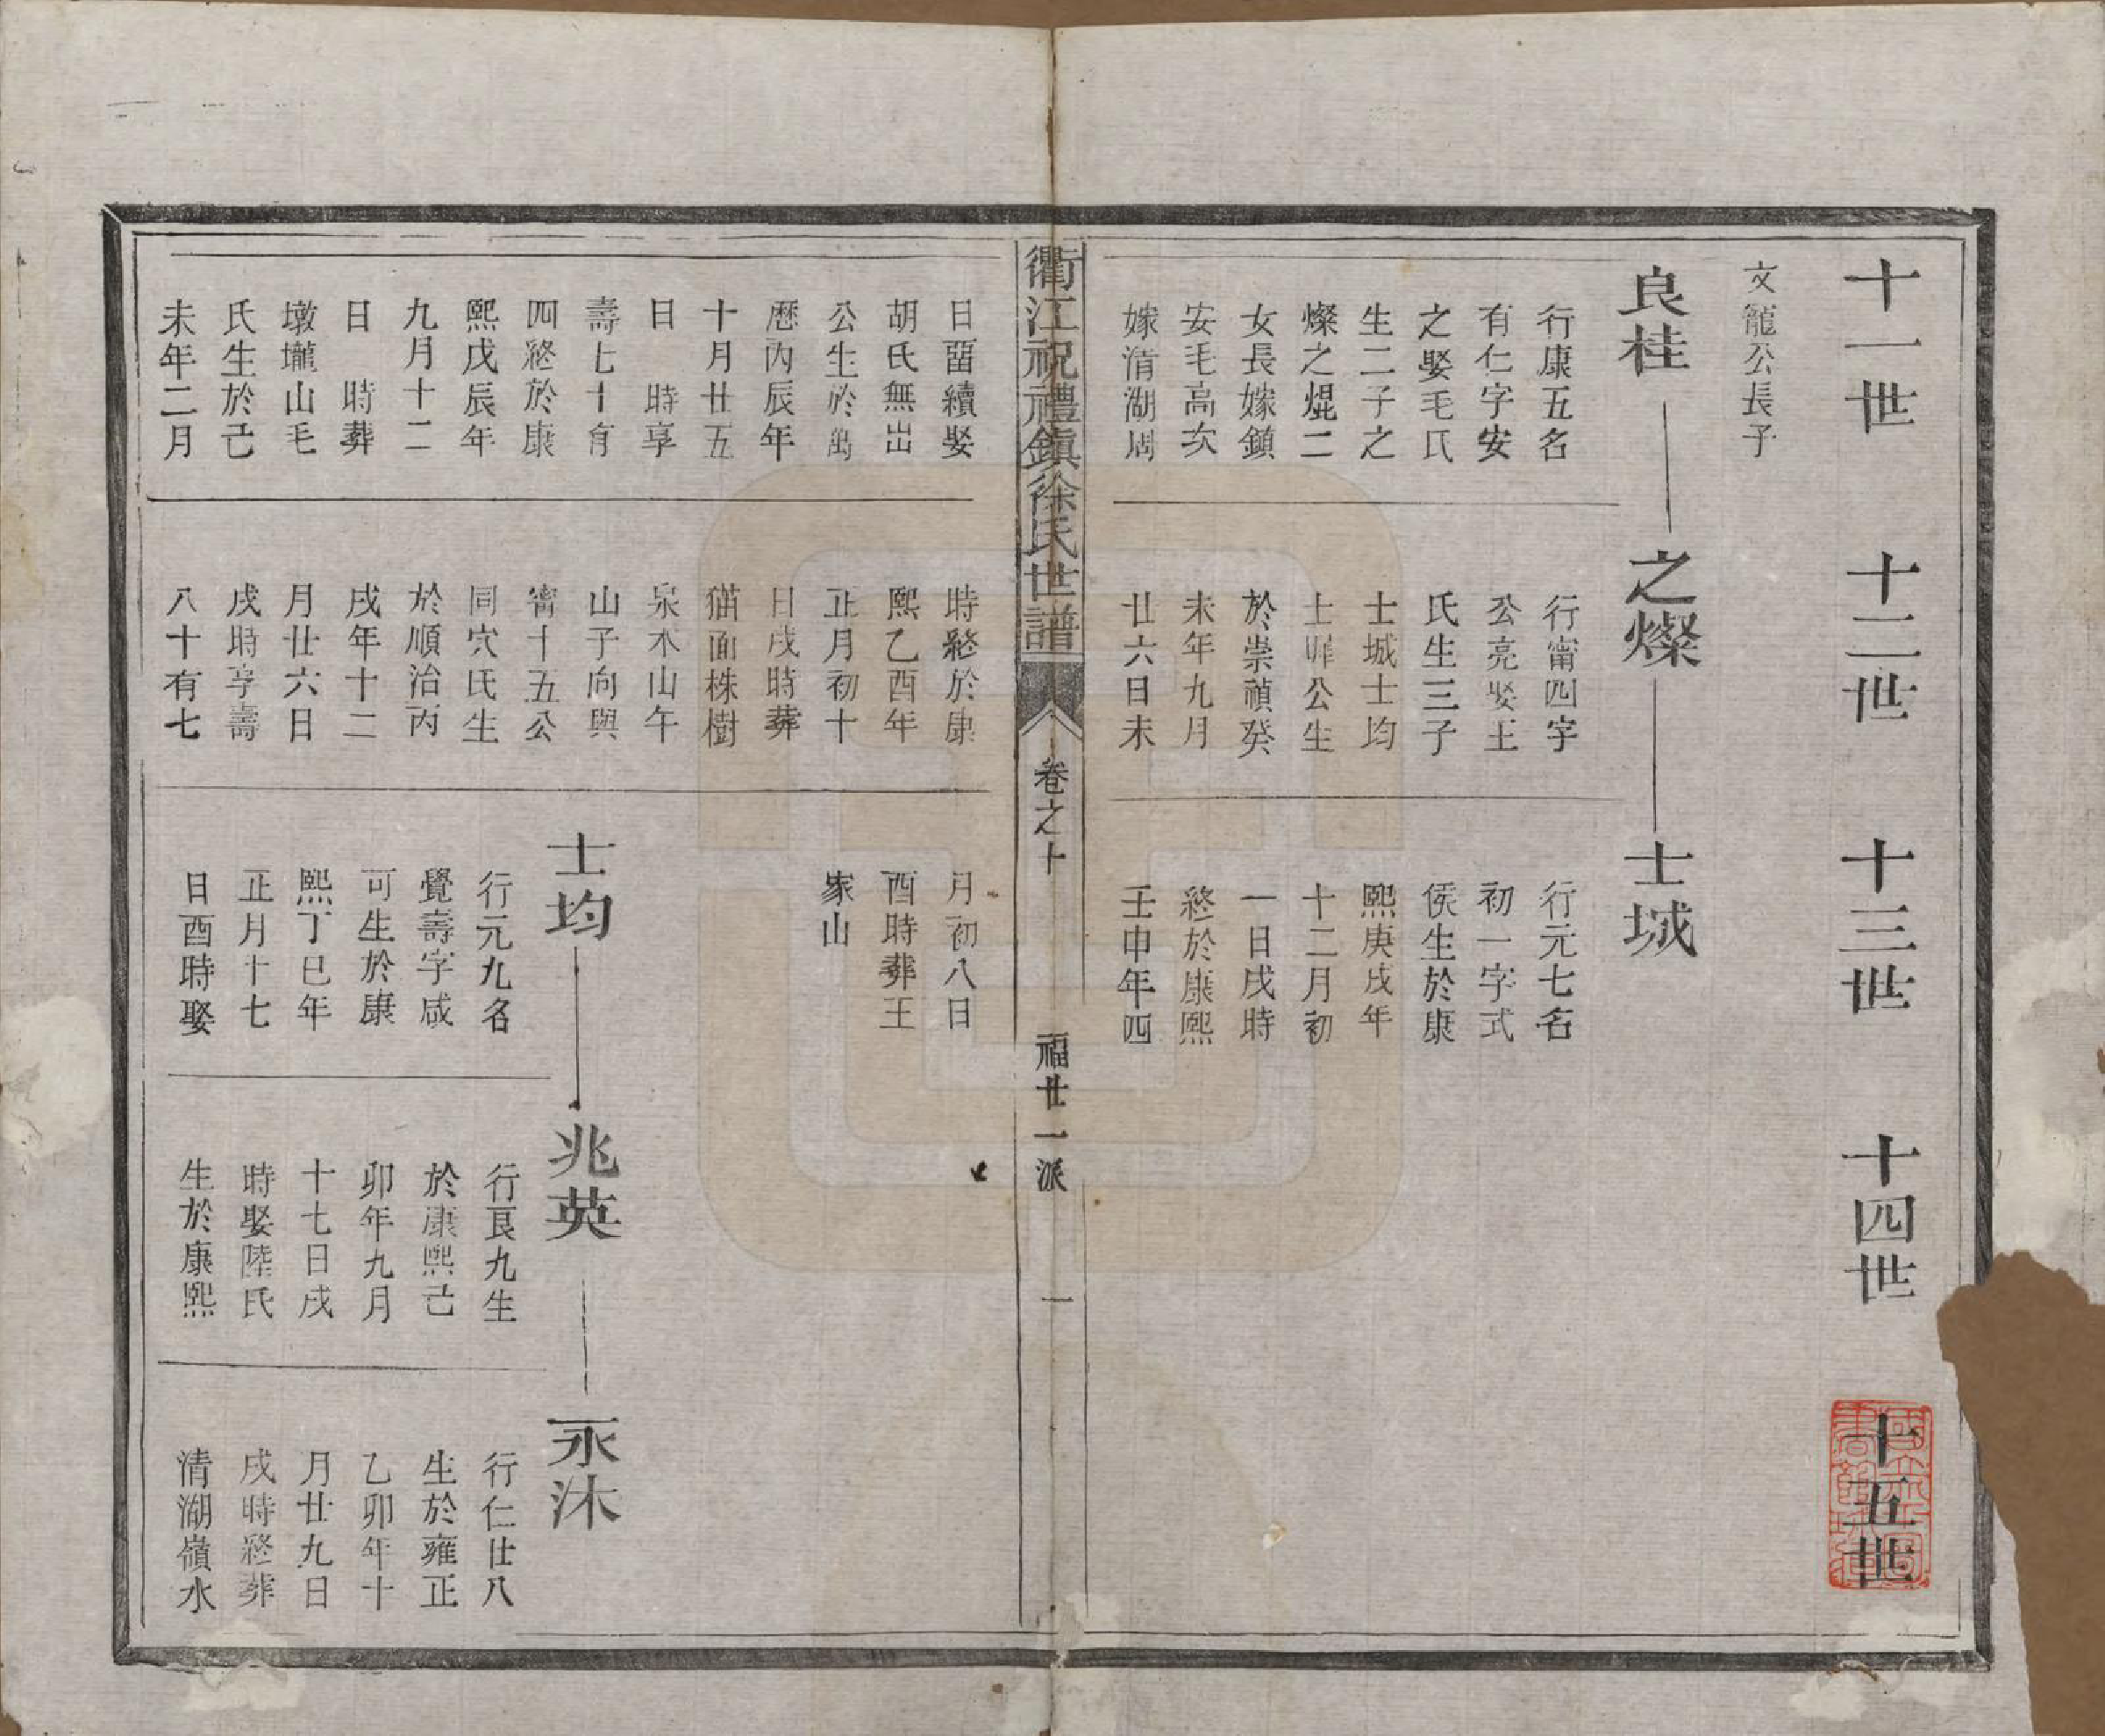 十一世
十二世
十三世
十四世
十五世
文龍公長子
良桂
行康五名
有仁字安
之娶毛氏
生二子之
燦之焜二
女長嫁鎮
安毛高次
嫁清湖周
之燦
行甯四字
公亮娶王
氏生三子
士城士均
士 公生
於崇禎癸
未年九月
廿六日未
士城
行元七名
初一字式
侯生於康
熙庚戌年
十二月初
一日戌時
終於康熙
壬申年四
衢江祝禮鎮徐氏世譜
卷之十
福廿一派
一
日酉續娶
胡氏無出
公生於萬
歷丙辰年
十月廿五
日 時享
壽七十有
四終於康
熙戊辰年
九月十二
日 時葬
墩壠山毛
氏生於己
未年二月
時終於康
熙乙酉年
正月初十
日戌時葬
猫面株樹
泉水山午
山子向與
甯十五公
同穴氏生
於順治丙
戌年十二
月廿六日
戌時享壽
八十有七
月初八日
酉時葬王
家山
士均
行元九名
覺壽字咸
可生於康
熙丁巳年
正月十七
日酉時娶
兆英
行良九生
於康熙己
卯年九月
十七日戌
時娶陸氏
生於康熙
永沐
行仁廿八
生於雍正
乙卯年十
月廿九日
戌時終葬
清湖嶺水